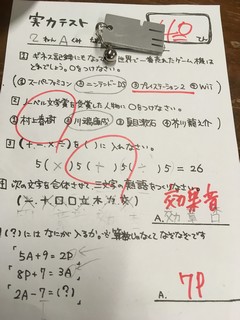 実力テスト
2ねん Aくみ
1 ギネス記録にもなって 世界で一番売れたゲーム機は
どれでしょう。〇をつけなさい。
①スーパーファミコン ②ニンテンドーDS ③プレイステーション2 ④Wii
2 ノーベル文学賞を受賞した人物に〇をつけなさい。
①村上春樹 ②川端康成 ③夏目漱石 ④芥川龍之介
3 (+、-、×、÷)を( )に入れなさい。
5(×)5(+)5(÷)5=26
4 次の文字を合体させて二文字の熟語をつくりなさい。
効果音
A.
(?)にはなにが入るか。算数じゃなくてなぞなぞです
「5A+9=2P
8P+7=3A
2A-7=(?)」
A. 7P